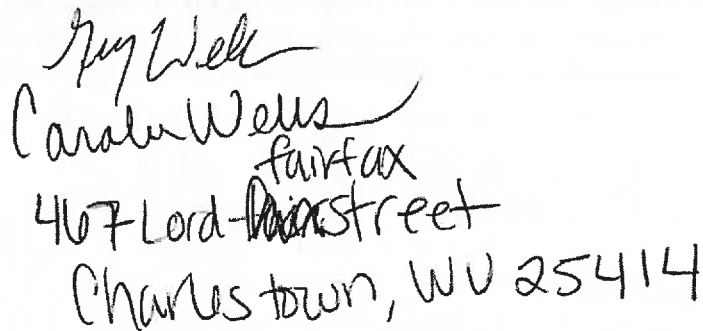 Wells
Carolee Wells
fairfax
467 Lord street
Charlestown, WV 25414